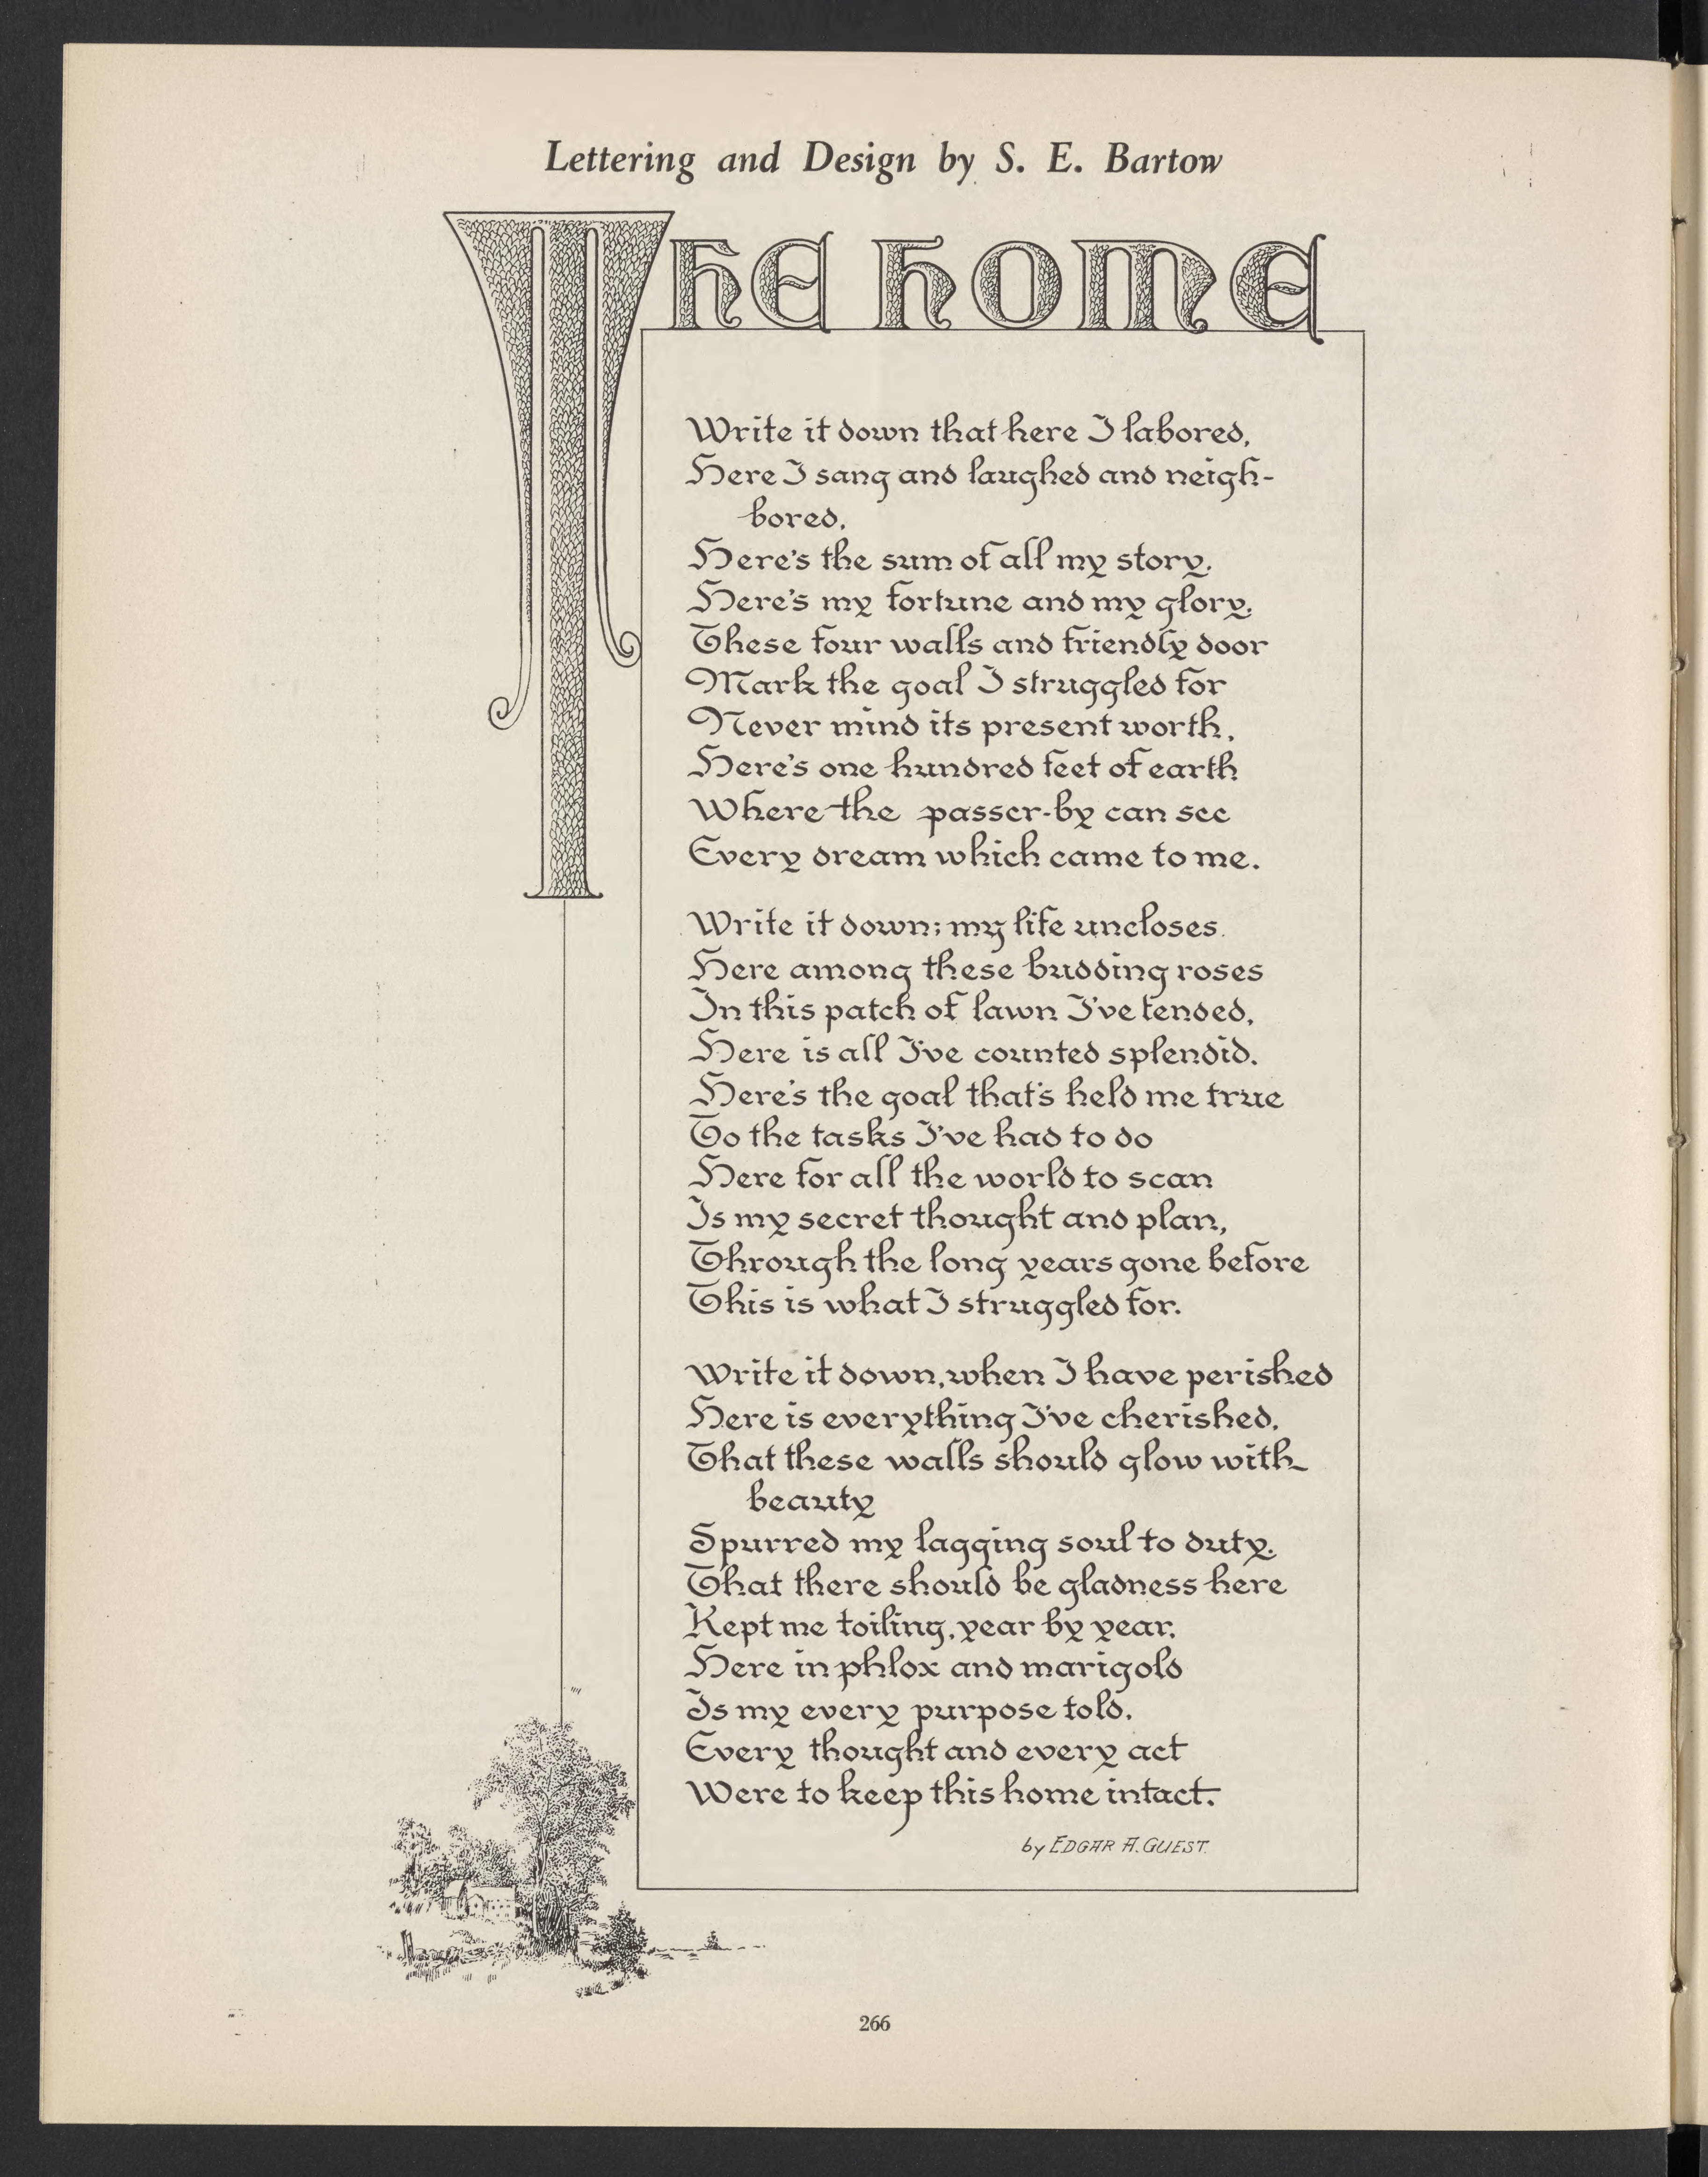 Lettering and Design by S. E. Bartow
THE HOME
Write it down that here I labored,
Here I sang and laughed and neigh-
bored,
Here's the sum of all my story.
Here's my fortune and my glory.
These four walls and friendly door
Mark the goal I struggled for
Never mind its present worth,
Here's one hundred feet of earth
Where the passer-by can see
Every dream which came to me.
Write it down; my life uncloses.
Here among these budding roses
In this patch of lawn I've tended,
Here is all I've counted splendid.
Here's the goal that's held me true
To the tasks I've had to do
Here for all the world to scan
Is my secret thought and plan,
Through the long years gone before
This is what I struggled for.
Write it down, when I have perished
Here is everything I've cherished.
That these walls should glow with
beauty
Spurred my lagging soul to duty.
That there should be gladness here
Kept me toiling, year by year.
Here in phlox and marigold
Is my every purpose told.
Every thought and every act
Were to keep this home intact.
by EDGAR A. GUEST.
266